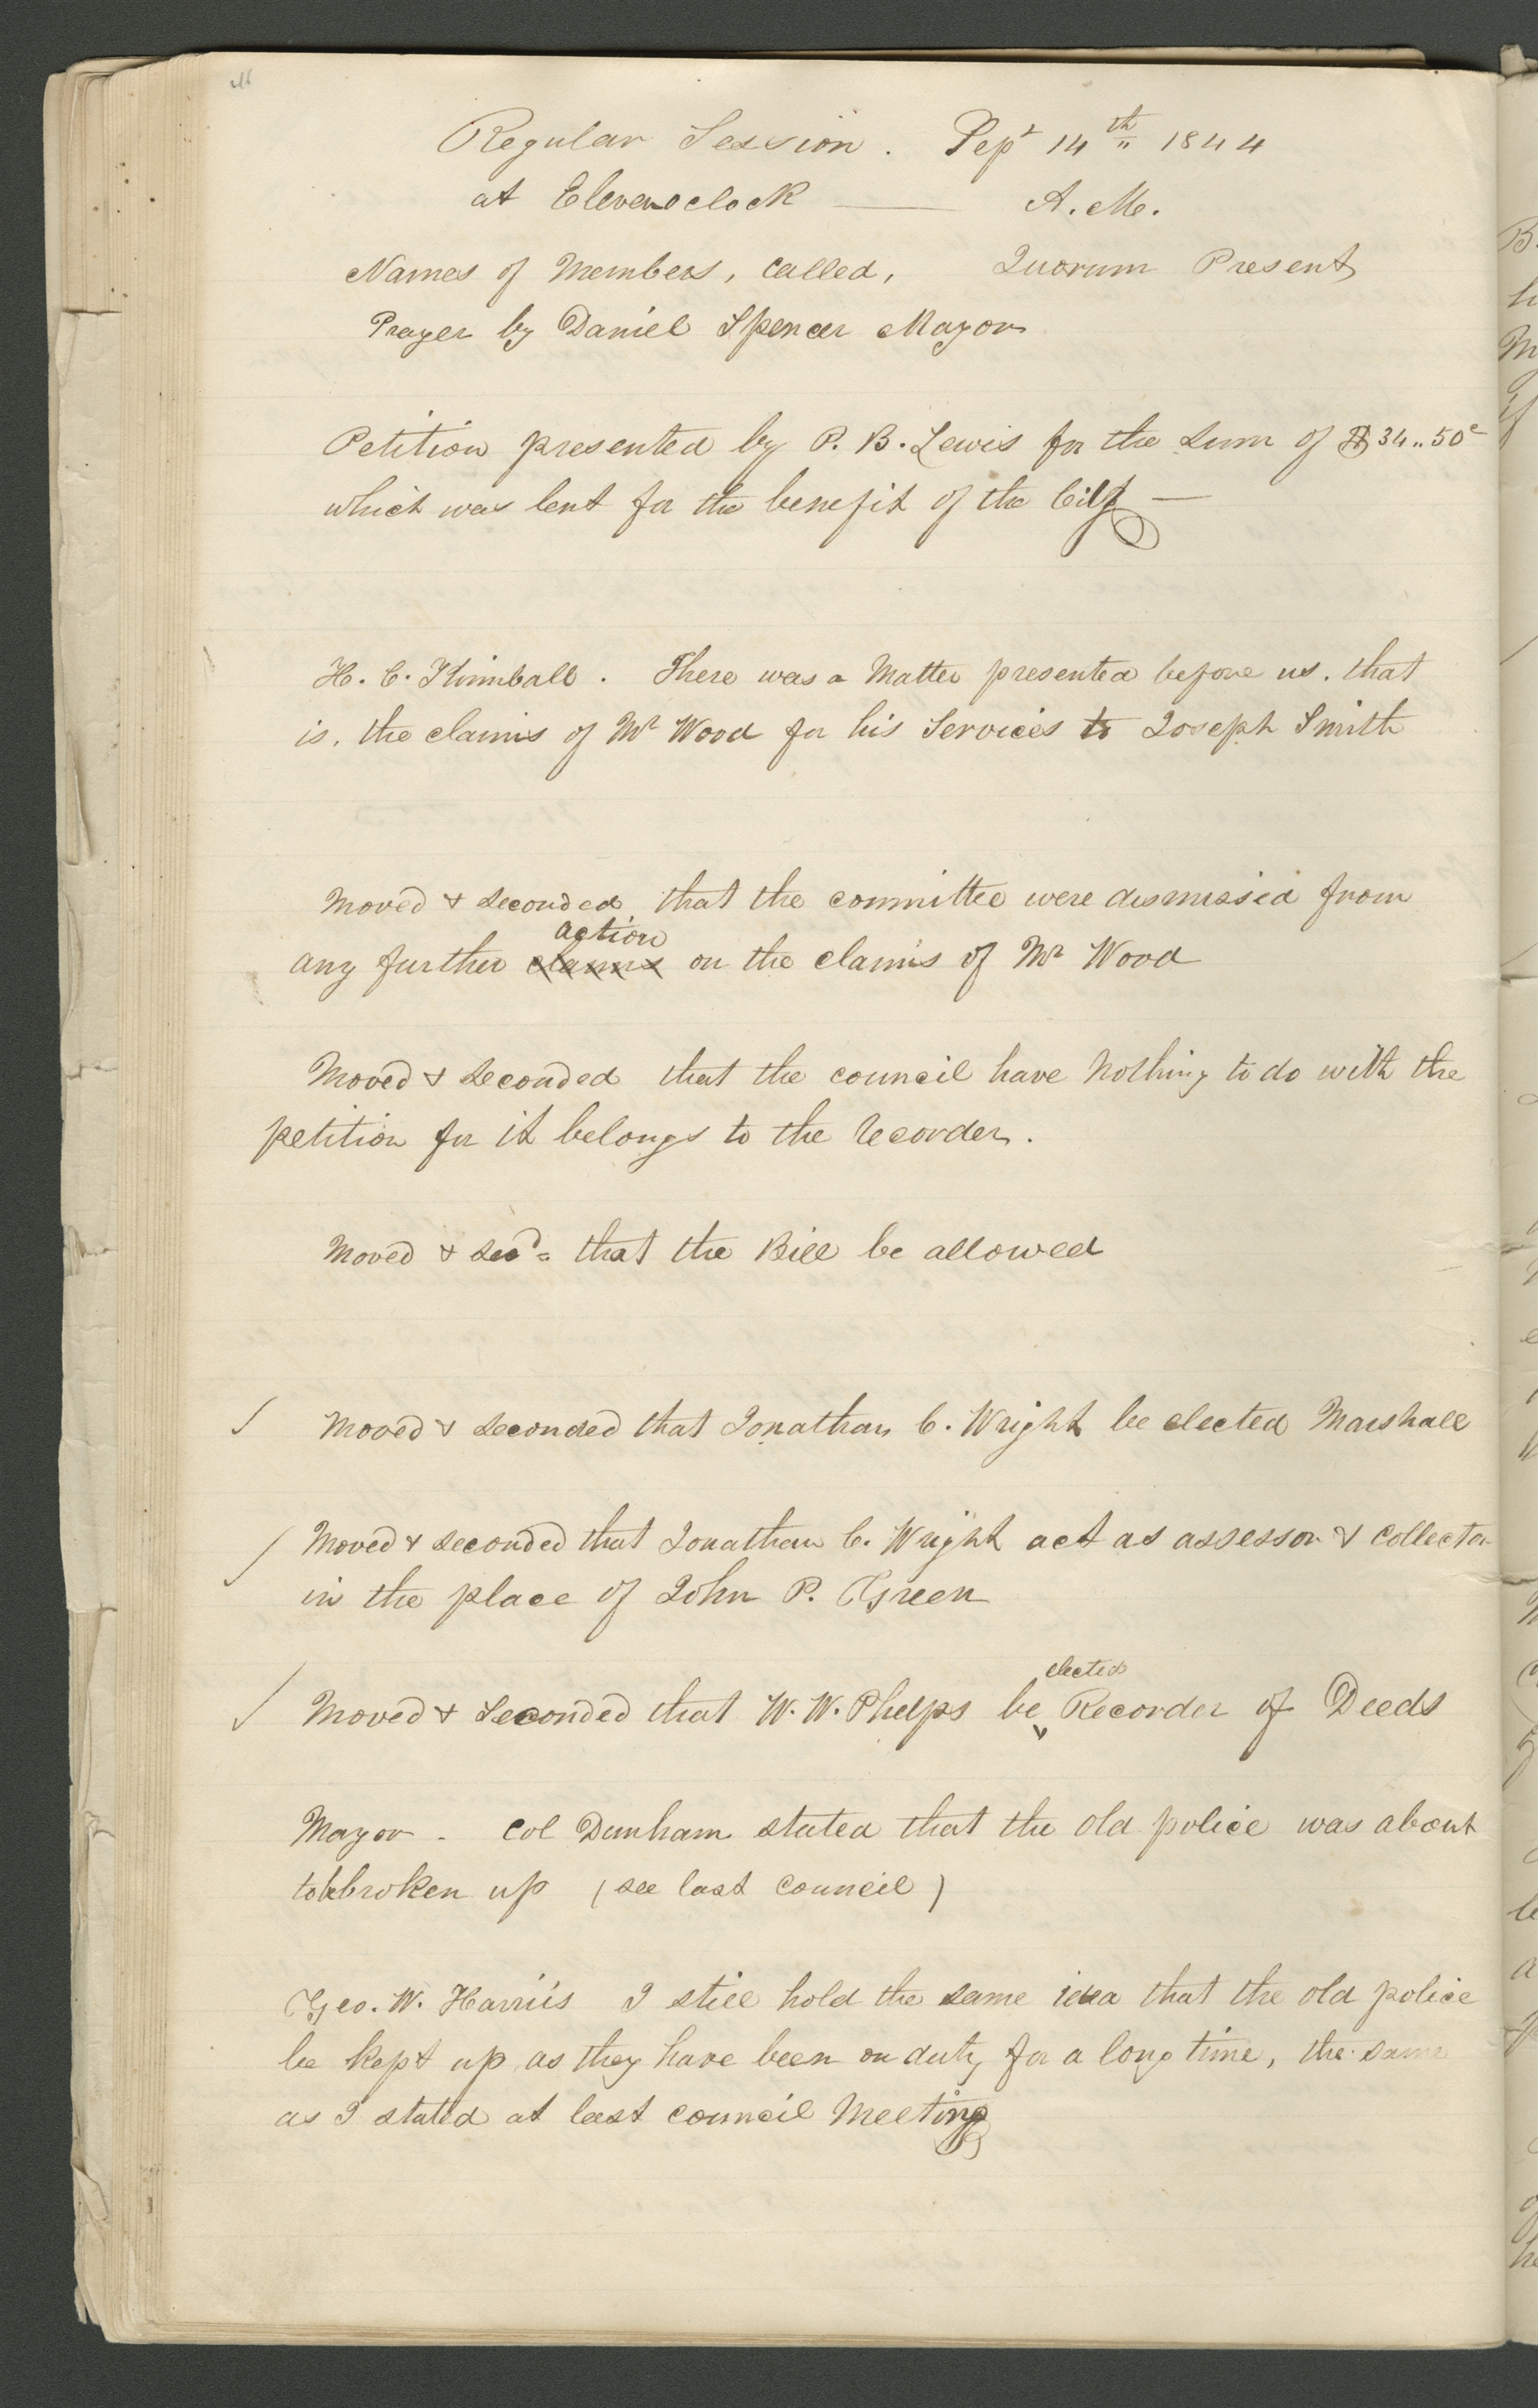 Regular Session. Sept 14th 1844
at Eleven oclock — A. M.
Names of Members, called, Quorum Present
Prayer by Daniel Spencer Mayor
Petition presented by P. B. Lewis for the sum of $34..50c
which was lent for the benefit of the City —
H. C. Kimball. There was a Matter presented before us. that
is, the claims of Mr Wood for his Services to Joseph Smith
Moved & seconded that the committee were dismissed from
action
any further claims on the claims of Mr Wood
Moved & seconded that the council have Nothing to do with the
petition for it belongs to the Recorder.
Moved & secd= that the Bill be allowed
Moved & seconded that Jonathan C. Wright be elected Marshall
Moved & seconded that Jonathan C. Wright act as assessor & Collector
in the place of John P. Green
elected
Moved & Seconded that W. W. Phelps be Recorder of Deeds
Mayor - Col Dunham stated that the old police was about
to be broken up (see last council)
Geo. W. Harris I still hold the same idea that the old police
be kept up as they have been on duty for a long time, the same
as I stated at last council Meeting